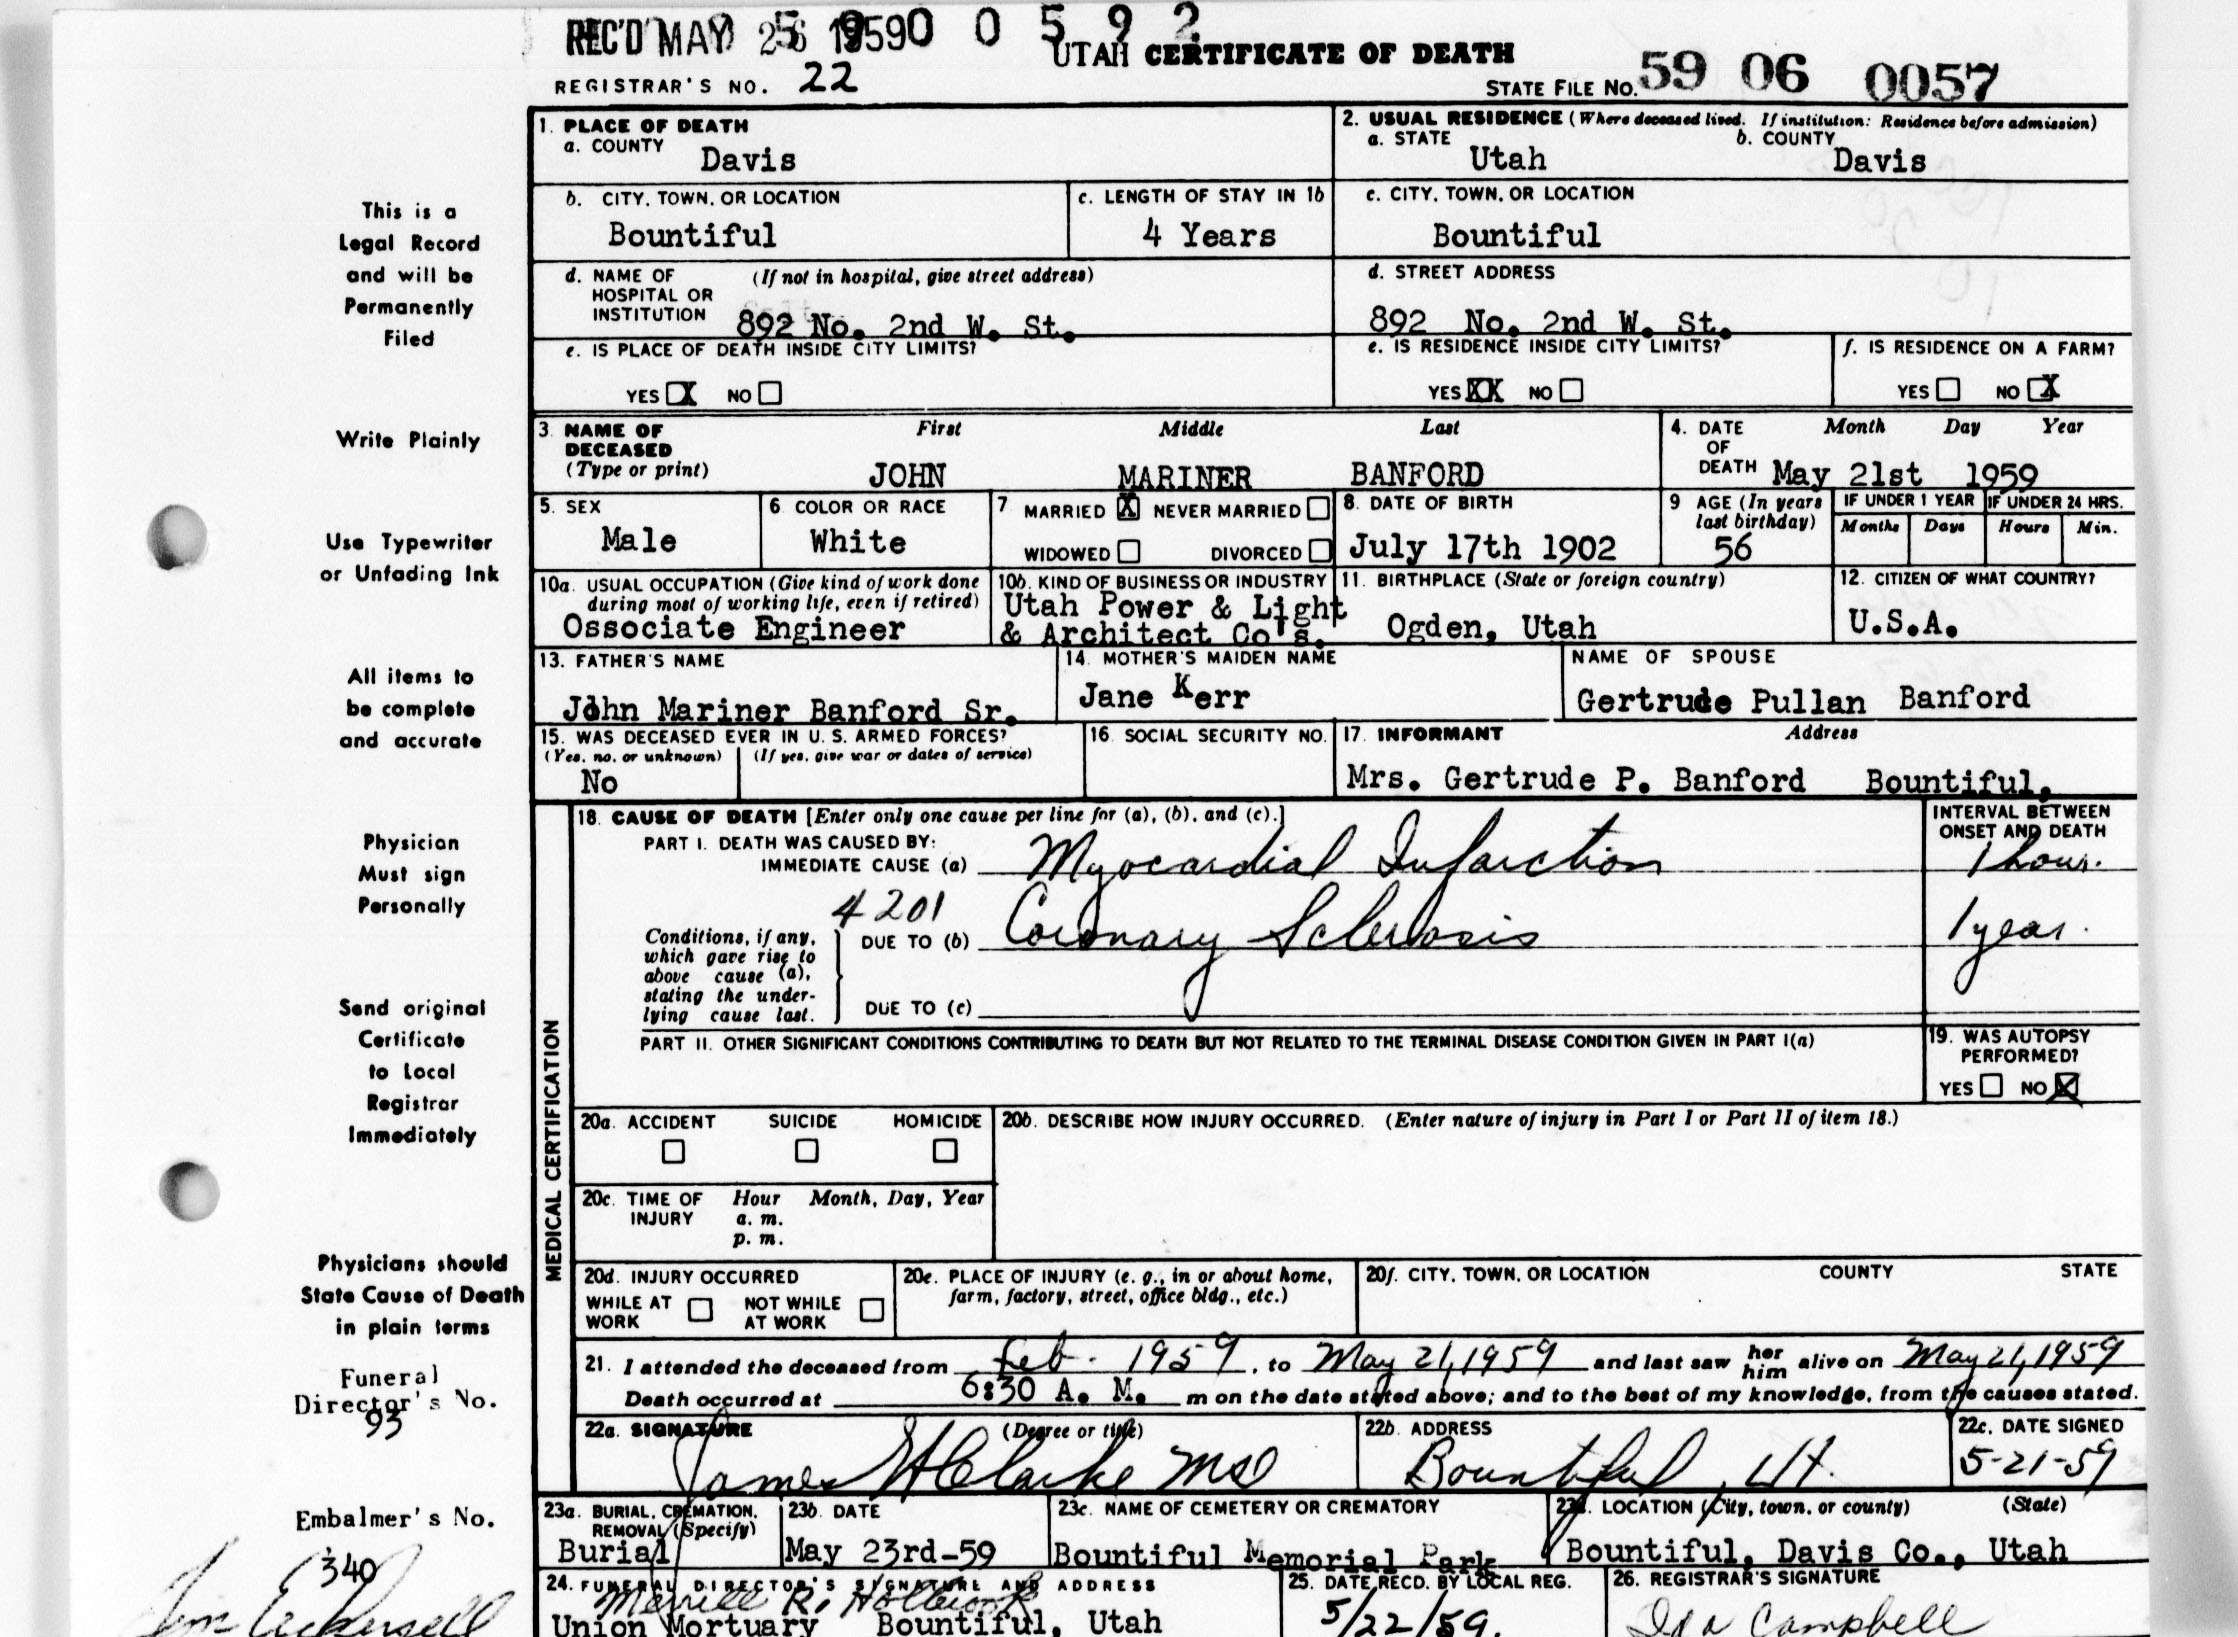 REC'D MAY 26 1959 0 0 5 9 2
UTAH CERTIFICATE OF DEATH
REGISTRAR'S NO. 22
STATE FILE NO. 59 06 0057
This is a
Legal Record
and will be
Permanently
Filed
Write Plainly
Use Typewriter
or Unfading Ink
All items to
be complete
and accurate
Physician
Must sign
Personally
Send original
Certificate
to Local
Registrar
Immediately
Physicians should
State Cause of Death
in plain terms
Funeral
Director's No.
93
Embalmer's No.
340
1. PLACE OF DEATH
a. COUNTY Davis
2. USUAL RESIDENCE (Where deceased lived. If institution: Residence before admission)
a. STATE Utah b. COUNTY Davis
b. CITY, TOWN, OR LOCATION
Bountiful
c. LENGTH OF STAY IN 1b
4 Years
c. CITY, TOWN, OR LOCATION
Bountiful
d. NAME OF HOSPITAL OR INSTITUTION (If not in hospital, give street address)
892 No. 2nd W. St.
d. STREET ADDRESS
892 No. 2nd W. St.
e. IS PLACE OF DEATH INSIDE CITY LIMITS?
YES X NO
e. IS RESIDENCE INSIDE CITY LIMITS?
YES XX NO
f. IS RESIDENCE ON A FARM?
YES NO X
3. NAME OF DECEASED (Type or print)
First Middle Last
JOHN MARINER BANFORD
4. DATE OF DEATH
Month Day Year
May 21st 1959
5. SEX
Male
6. COLOR OR RACE
White
7 MARRIED X NEVER MARRIED
WIDOWED DIVORCED
8. DATE OF BIRTH
July 17th 1902
9 AGE (In years last birthday)
56
IF UNDER 1 YEAR
Months Days
IF UNDER 24 HRS.
Hours Min.
10a. USUAL OCCUPATION (Give kind of work done during most of working life, even if retired)
Ossociate Engineer
10b. KIND OF BUSINESS OR INDUSTRY
Utah Power & Light
& Architect Co's.
11. BIRTHPLACE (State or foreign country)
Ogden, Utah
12. CITIZEN OF WHAT COUNTRY?
U.S.A.
13. FATHER'S NAME
John Mariner Banford Sr.
14. MOTHER'S MAIDEN NAME
Jane Kerr
NAME OF SPOUSE
Gertrude Pullan Banford
15. WAS DECEASED EVER IN U. S. ARMED FORCES?
(Yes, no, or unknown) (If yes, give war or dates of service)
No
16. SOCIAL SECURITY NO.
17. INFORMANT Address
Mrs. Gertrude P. Banford Bountiful,
MEDICAL CERTIFICATION
18. CAUSE OF DEATH [Enter only one cause per line for (a), (b), and (c).]
INTERVAL BETWEEN ONSET AND DEATH
PART I. DEATH WAS CAUSED BY:
IMMEDIATE CAUSE (a) Myocardial Infarction 1 hour.
4201
Conditions, if any, which gave rise to above cause (a), stating the underlying cause last.
DUE TO (b) Coronary Sclerosis 1 year.
DUE TO (c)
PART II. OTHER SIGNIFICANT CONDITIONS CONTRIBUTING TO DEATH BUT NOT RELATED TO THE TERMINAL DISEASE CONDITION GIVEN IN PART I(a)
19. WAS AUTOPSY PERFORMED?
YES NO X
20a. ACCIDENT SUICIDE HOMICIDE
20b. DESCRIBE HOW INJURY OCCURRED. (Enter nature of injury in Part I or Part II of item 18.)
20c. TIME OF INJURY Hour Month, Day, Year
a. m.
p. m.
20d. INJURY OCCURRED
WHILE AT WORK NOT WHILE AT WORK
20e. PLACE OF INJURY (e. g., in or about home, farm, factory, street, office bldg., etc.)
20f. CITY, TOWN, OR LOCATION COUNTY STATE
21. I attended the deceased from Feb. 1959, to May 21, 1959 and last saw her him alive on May 21, 1959
Death occurred at 6:30 A. M. m on the date stated above; and to the best of my knowledge, from the causes stated.
22a. SIGNATURE (Degree or title)
James H Clarke MD
22b. ADDRESS
Bountiful, Ut.
22c. DATE SIGNED
5-21-59
23a. BURIAL, CREMATION, REMOVAL (Specify)
Burial
23b. DATE
May 23rd-59
23c. NAME OF CEMETERY OR CREMATORY
Bountiful Memorial Park
23d. LOCATION (City, town, or county) (State)
Bountiful, Davis Co., Utah
24. FUNERAL DIRECTOR'S SIGNATURE AND ADDRESS
Merrill R. Holbrook
Union Mortuary Bountiful, Utah
25. DATE RECD. BY LOCAL REG.
5/22/59.
26. REGISTRAR'S SIGNATURE
Ida Campbell